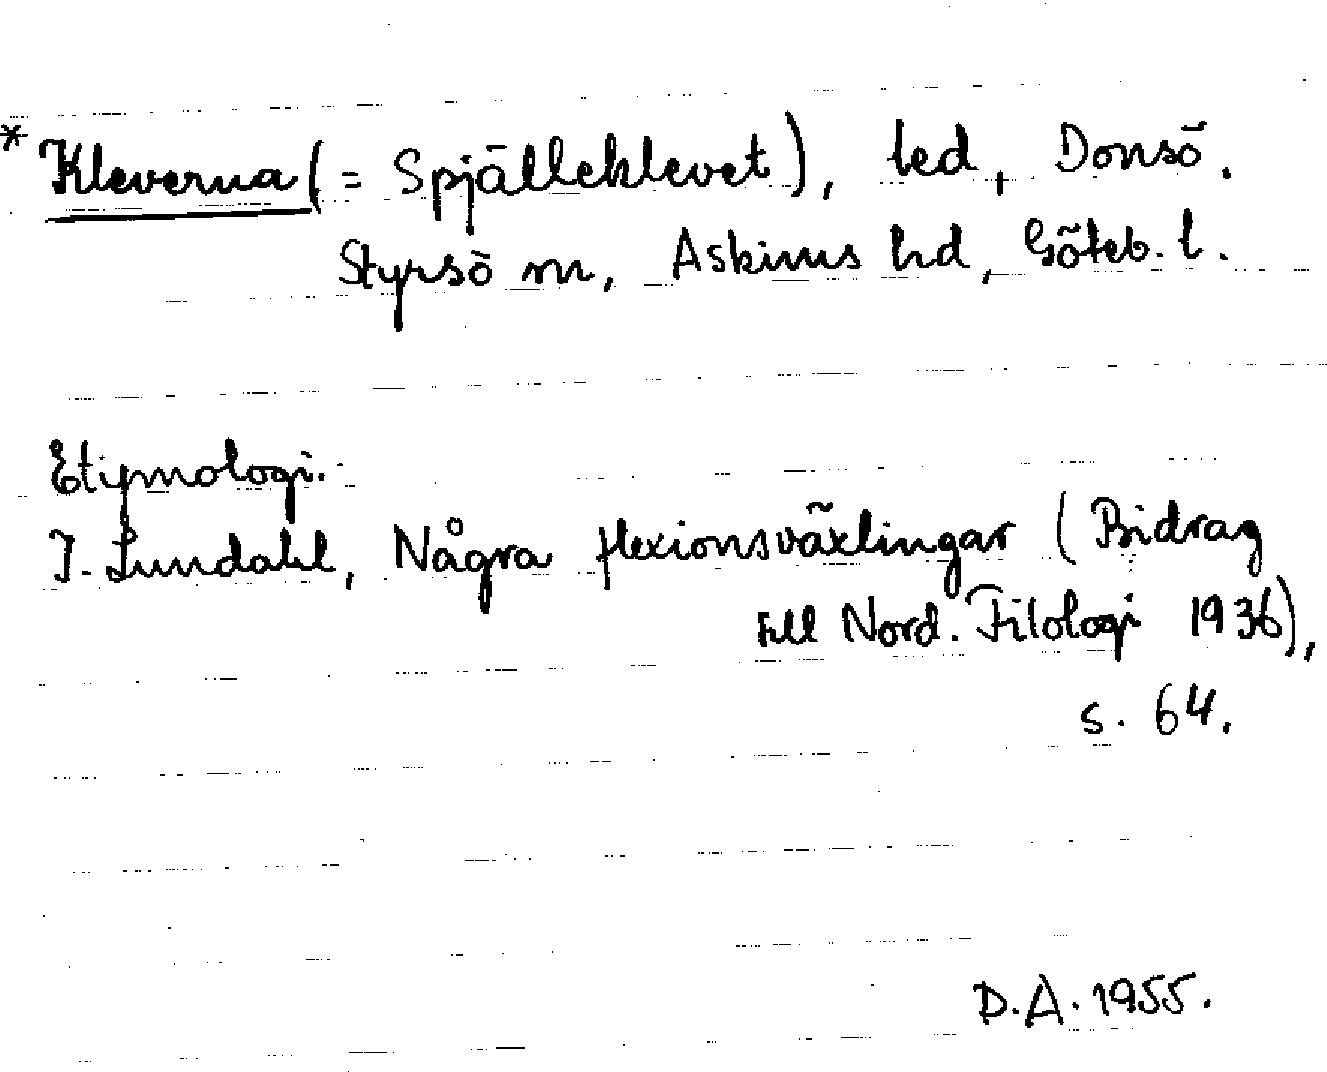 * Kleverna (= Spjälleklevet), led, Donsö.
Styrsö sn, Askims hd, Göteb. l.
Etymologi.
I. Lundahl, Några flexionsväxlingar (Bidrag
till Nord. Filologi 1936),
s. 64.
D.A. 1955.